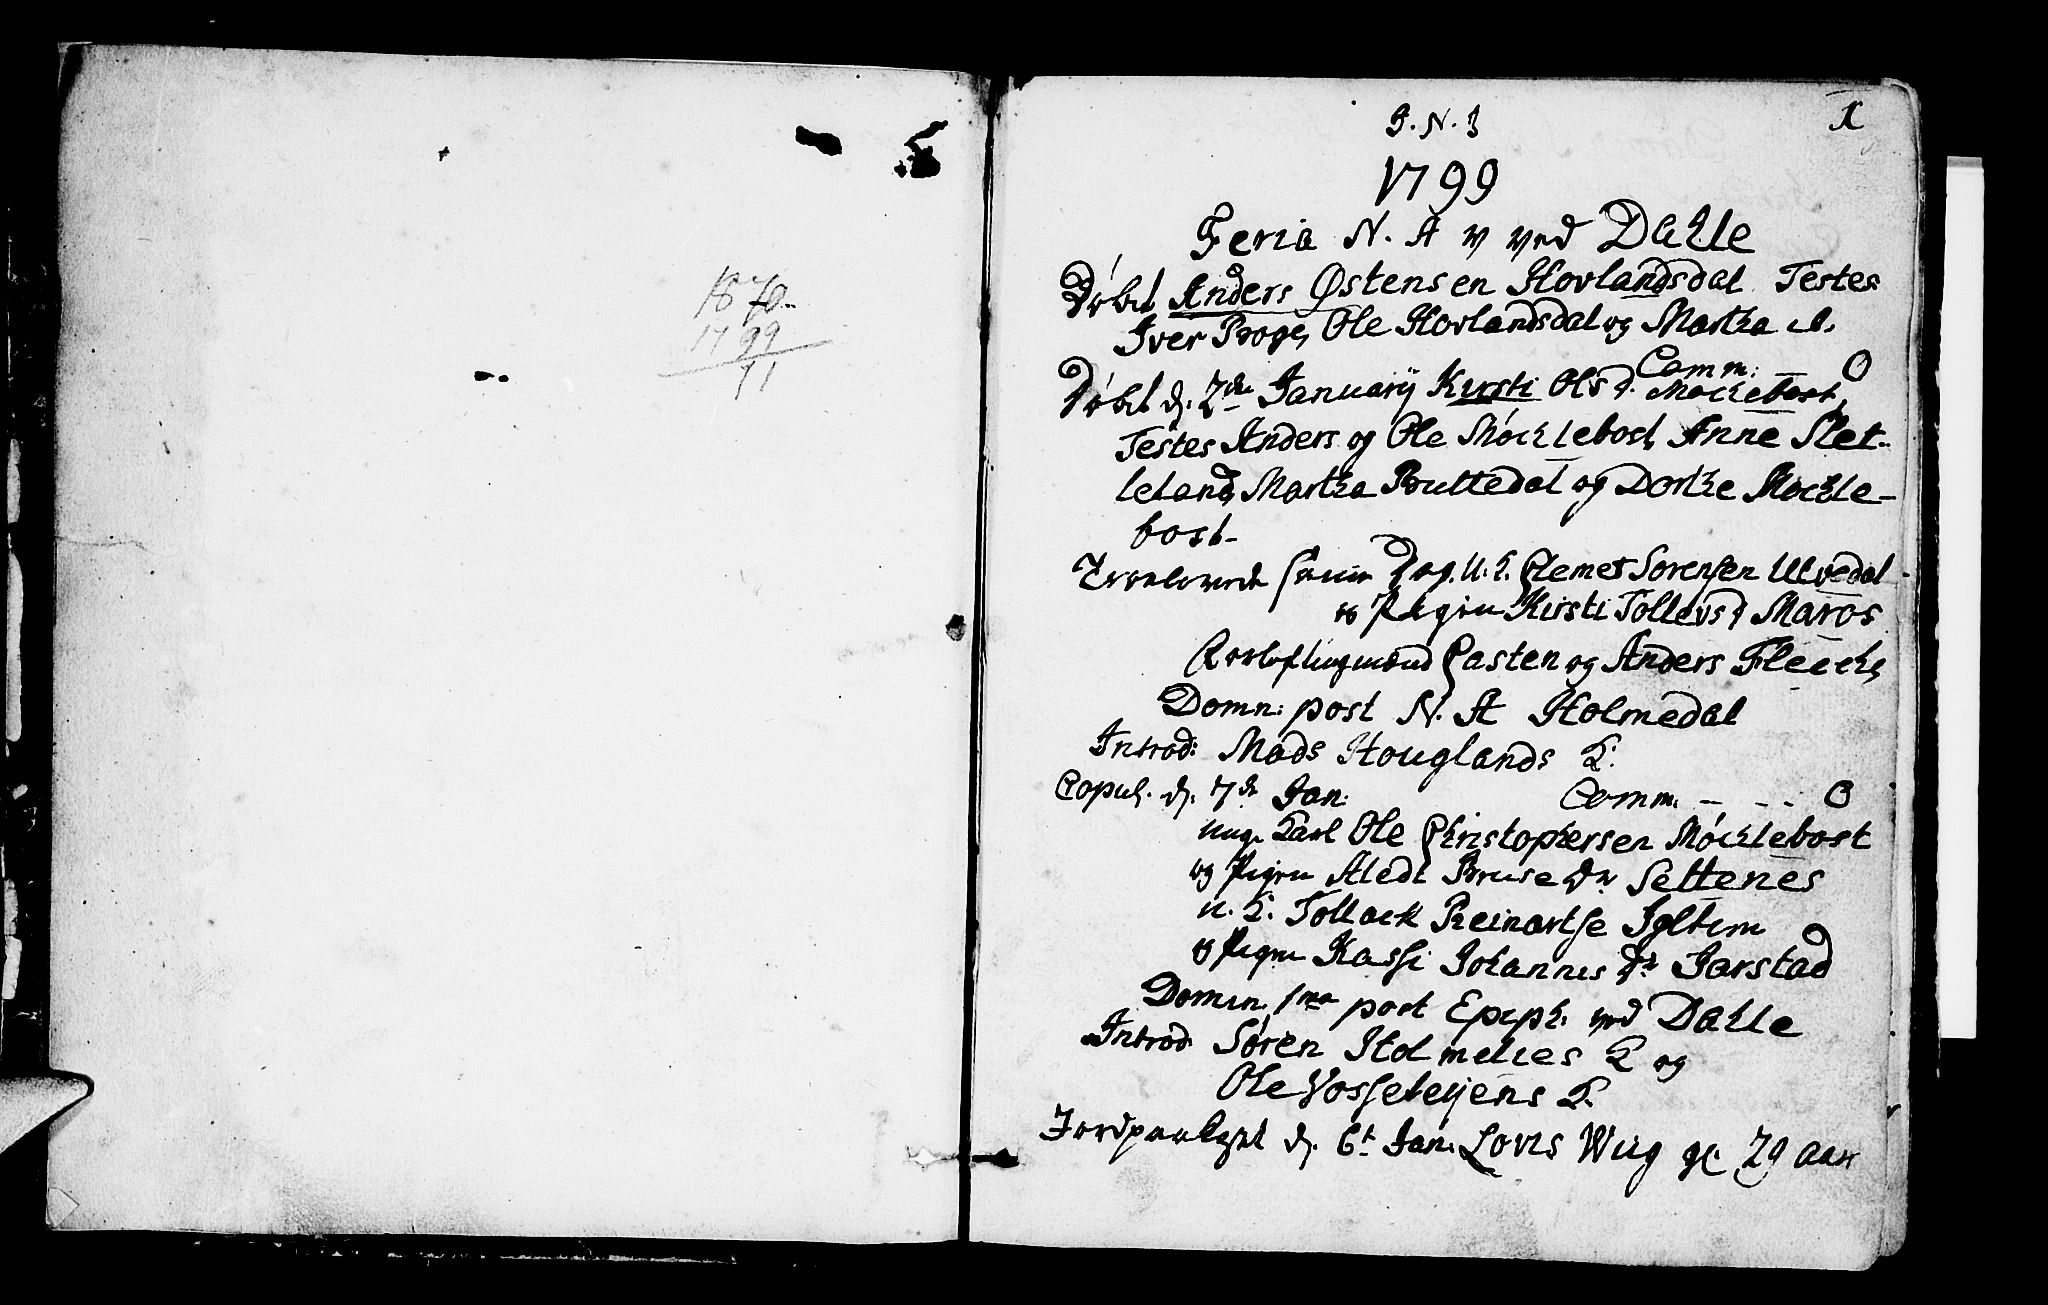 1870
1799
71
J. N. J
1
1799
Feria N. A v ved Dahle
Døbt Anders Østensen Hovlandsdal Testes
Iver Boge, Ole Hovlandsdal og Martha d.
Comm: — 0
Døbt d. 2den Januarÿ Kirsti Olsd. Møcklebost,
Testes Anders og Ole Møcklebost, Anne Slet-
teland, Martha Buttedal og Dorthe Møckle-
bost-
Troelovede samme Dag. U. K. Clemet Sørensen Ulvedal
og Pigen Kirsti Tollevsd Marøs
Casten og Anders Fleche,
Domn: post N. A Holmedal
Introd: Mads Houglands K.
Copul. d. 7de Jan:
Comm. — - - 0
unge Karl Ole Christophersen Møcklebost
og Pigen Aledt Bruse Dr Settenes
u. K. Tollack Reinartse Igltun
og Pigen Kassi Johannes Dr Jarstad
Domin. 1ma post Epiph. ved Dahle
Introd Søren Holmelies K og
Ole Vossetejens K.
Jordpaakastet d. 6t Jan: Lovis Wiig gl. 29 aar